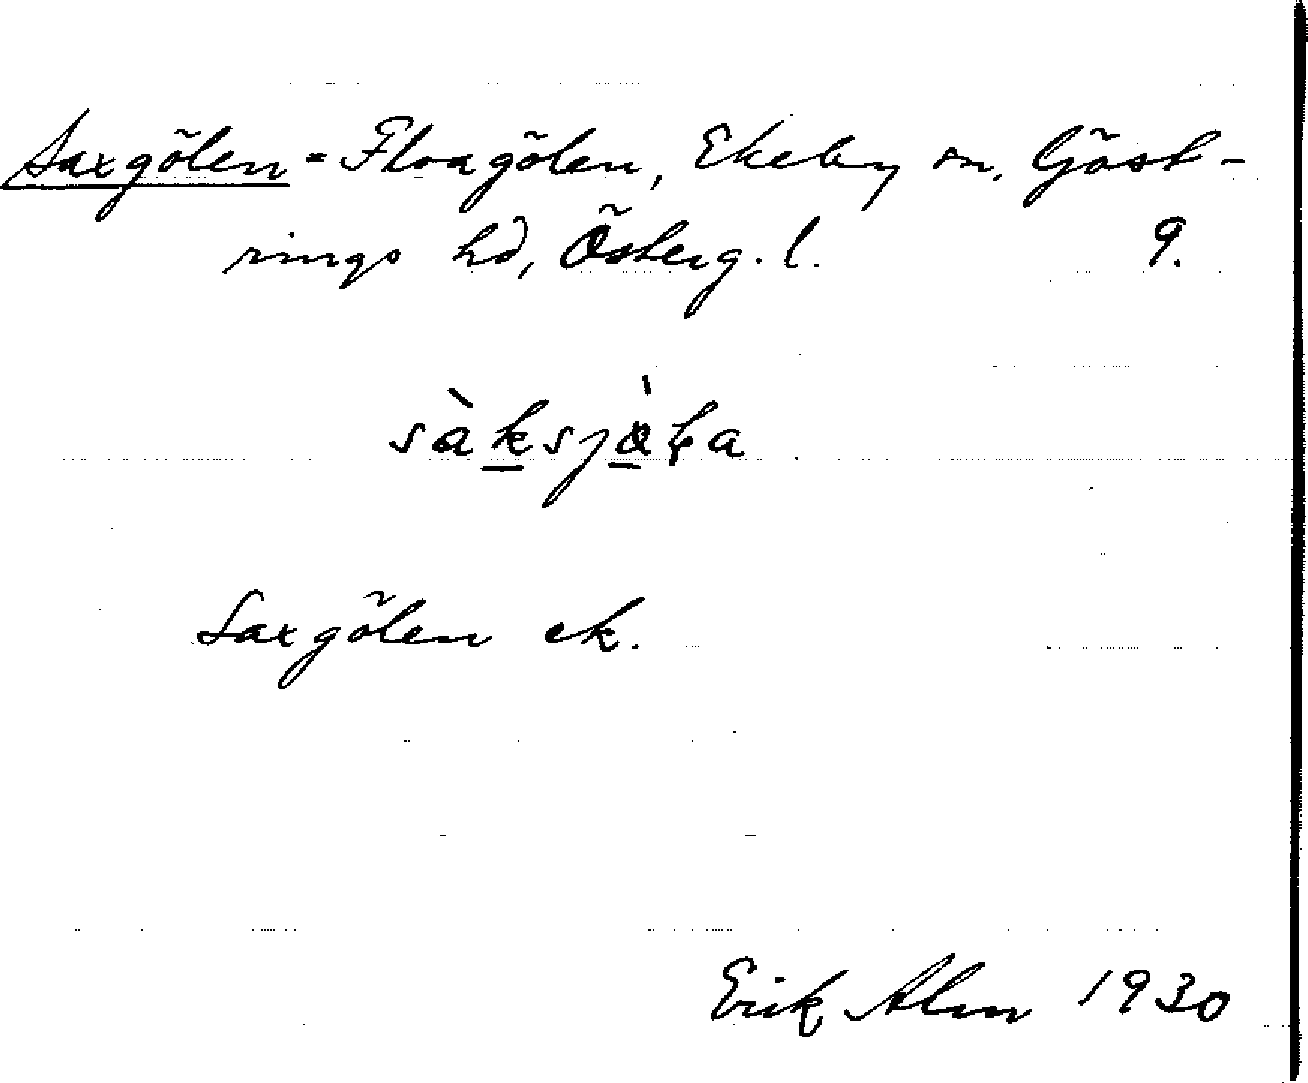 Saxgölen = Floagölen, Ekeby sn, Göst-
rings hd, Österg. l. 9.
Saxgölen ek.
Erik Alm 1930